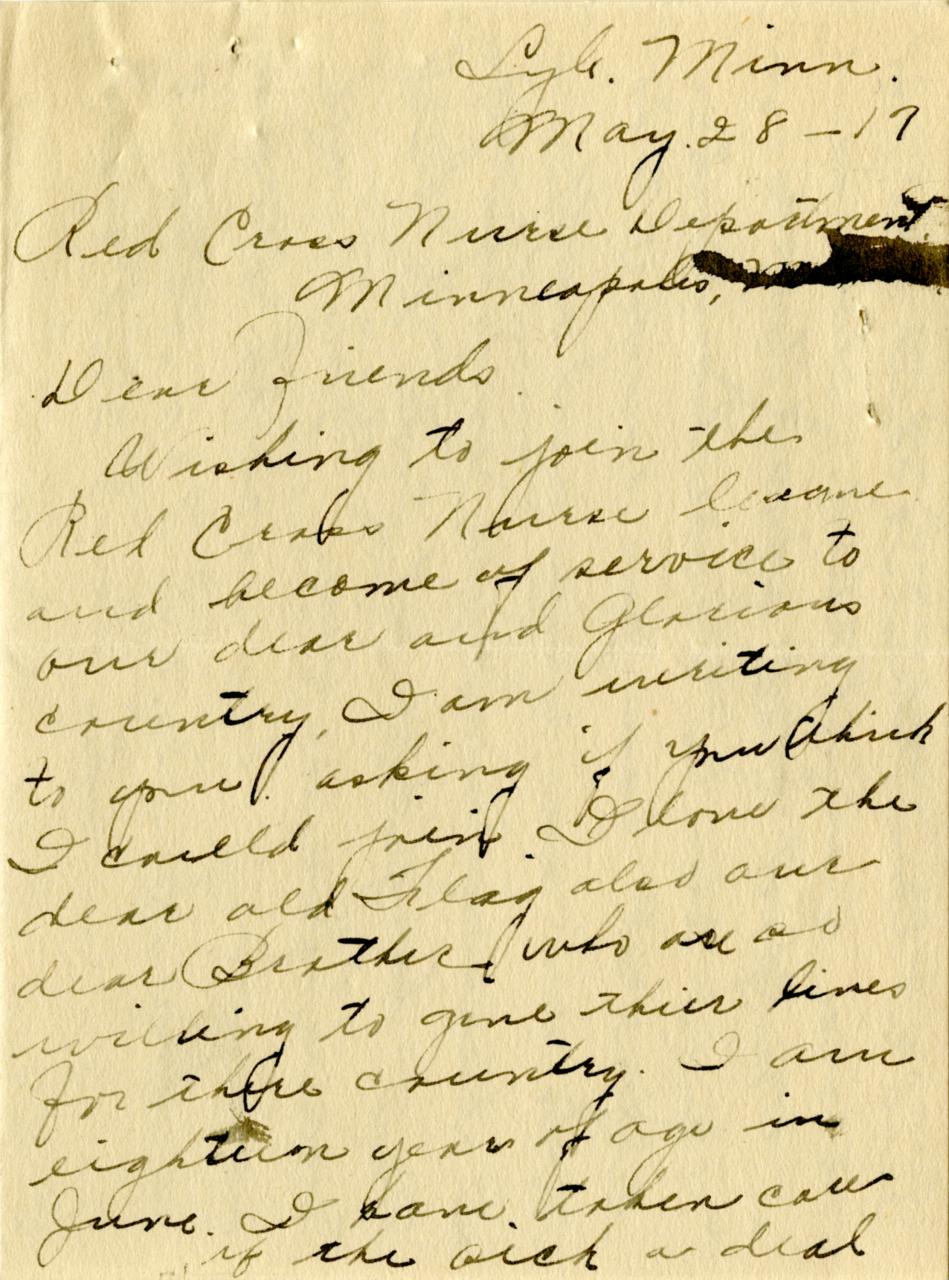 Lyle. Minn.
May. 28-17
Red Cross Nurse Department.
Minneapolis,
Dear Friends
Wishing to join the
Red Cross Nurse
and become of service to
our dear and Glorious
country, I am writing
to you. asking if you think
I could join. I love the
dear old Flag also our
dear Brother who are so
willing to give thier lives
for there country. I am
eighteen years of age in
June. I have taken care
of the sick a deal